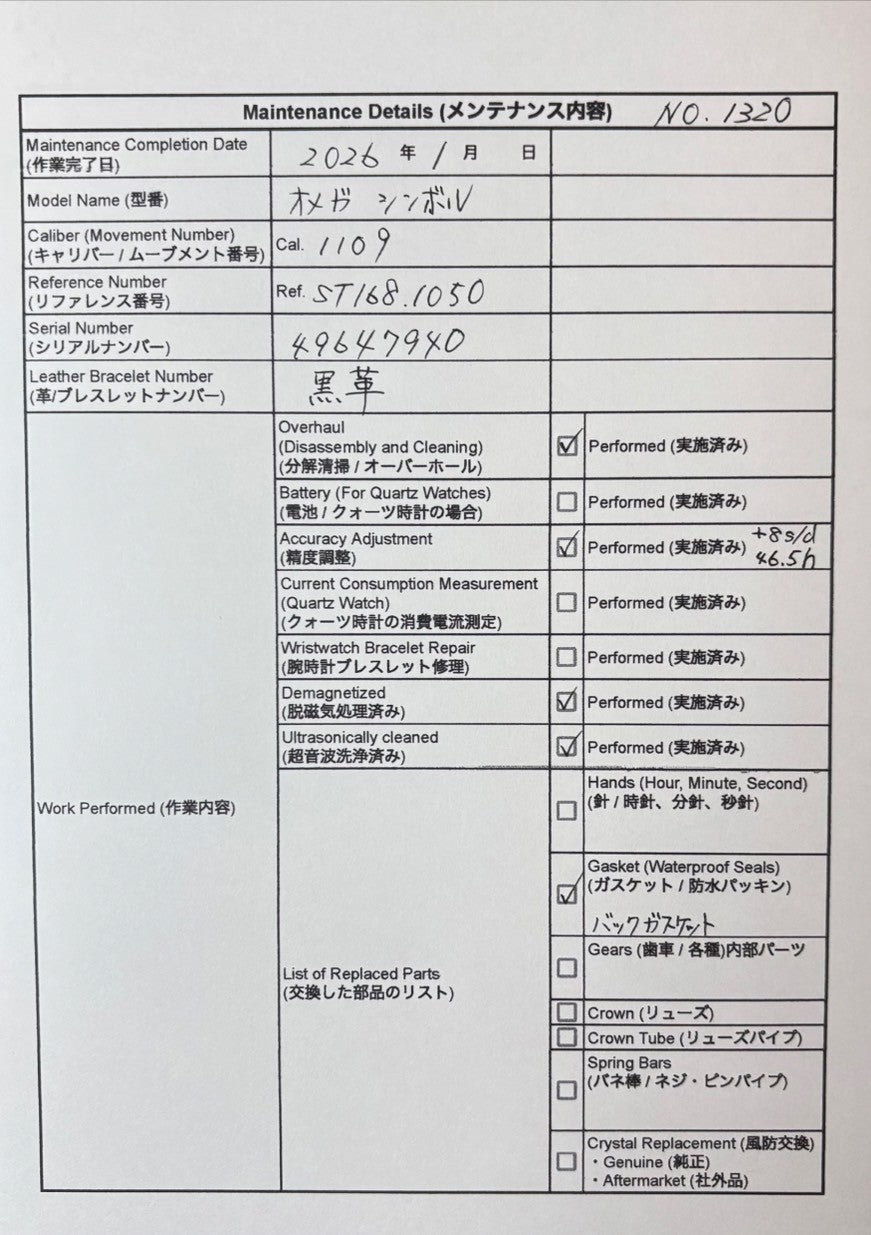 Maintenance Details (メンテナンス内容) NO. 1320
Maintenance Completion Date
(作業完了日)
2026 年 1 月 日
Model Name (型番)
オメガ シンボル
Caliber (Movement Number)
(キャリバー / ムーブメント番号)
Cal. 1109
Reference Number
(リファレンス番号)
Ref. ST168.1050
Serial Number
(シリアルナンバー)
49647940
Leather Bracelet Number
(革/ブレスレットナンバー)
黒革
Work Performed (作業内容)
Overhaul
(Disassembly and Cleaning)
(分解清掃 / オーバーホール)
Performed (実施済み)
Battery (For Quartz Watches)
(電池 / クォーツ時計の場合)
Performed (実施済み)
Accuracy Adjustment
(精度調整)
Performed (実施済み) +8s/d
46.5h
Current Consumption Measurement
(Quartz Watch)
(クォーツ時計の消費電流測定)
Performed (実施済み)
Wristwatch Bracelet Repair
(腕時計ブレスレット修理)
Performed (実施済み)
Demagnetized
(脱磁気処理済み)
Performed (実施済み)
Ultrasonically cleaned
(超音波洗浄済み)
Performed (実施済み)
List of Replaced Parts
(交換した部品のリスト)
Hands (Hour, Minute, Second)
(針 / 時針、分針、秒針)
Gasket (Waterproof Seals)
(ガスケット / 防水パッキン)
バックガスケット
Gears (歯車 / 各種)内部パーツ
Crown (リューズ)
Crown Tube (リューズパイプ)
Spring Bars
(バネ棒 / ネジ・ピンパイプ)
Crystal Replacement (風防交換)
・Genuine (純正)
・Aftermarket (社外品)